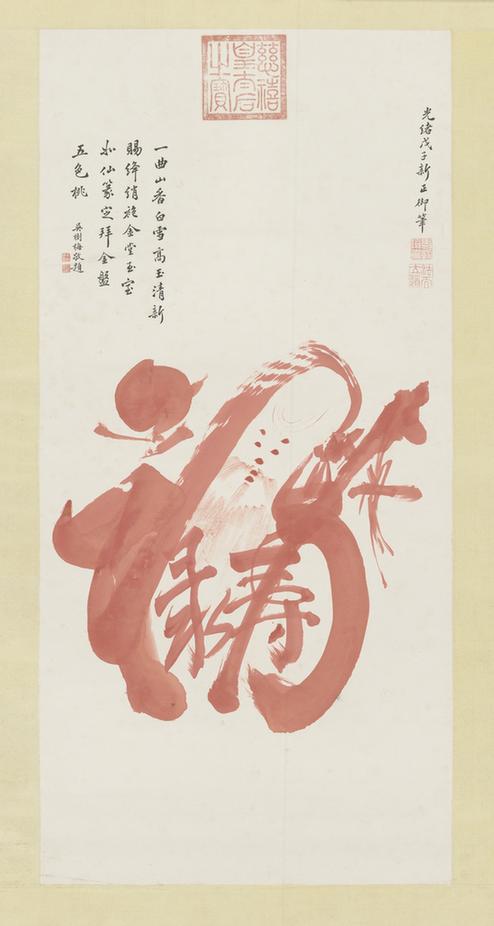 慈禧
皇太后
之寶
光緒戊子新正御筆
一曲山香白雪高玉清新
賜絳綃袍金堂玉室
仙篆定拜金盤
五色桃
吳樹梅敬題
祿壽